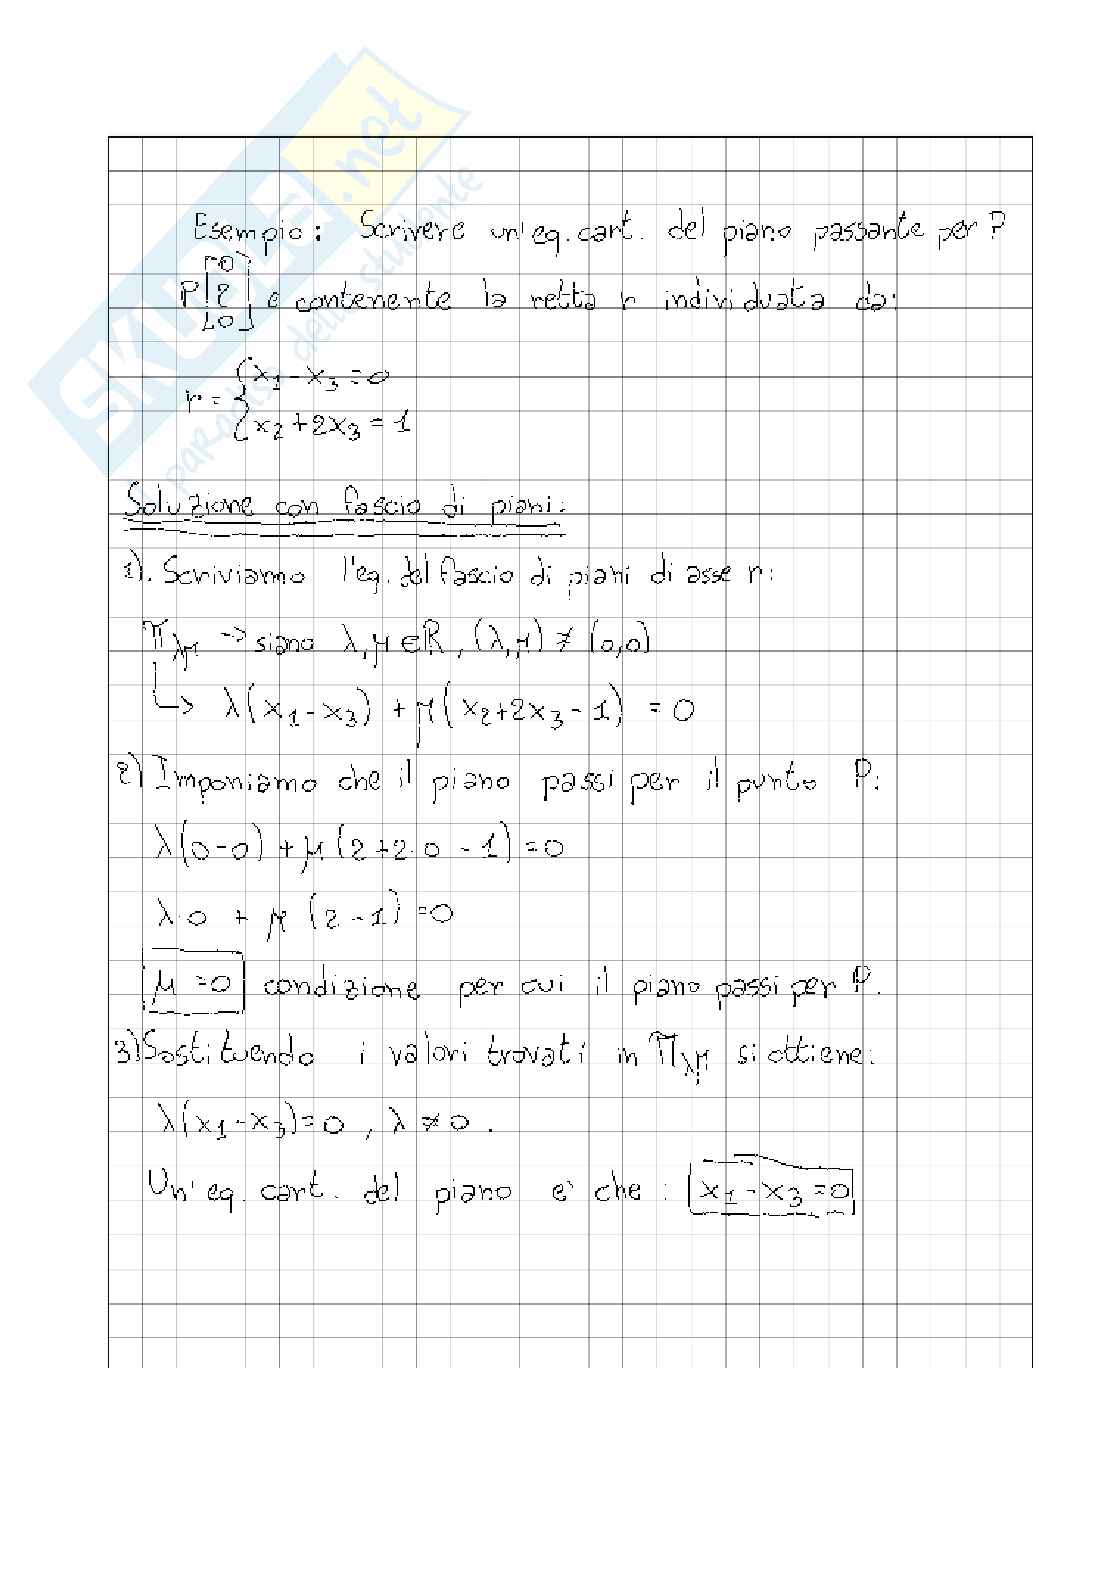 SKUOLA.net
il paradiso dello studente
Esempio: Scrivere un'eq. cart. del piano passante per P
P [0 2 0] e contenente la retta r individuata da:
r = { x₁ - x₃ = 0
x₂ + 2x₃ = 1
Soluzione con fascio di piani:
1). Scriviamo l'eq. del fascio di piani di asse r:
π_λμ → siano λ, μ ∈ ℝ, (λ, μ) ≠ (0,0)
↳ λ(x₁ - x₃) + μ(x₂ + 2x₃ - 1) = 0
2) Imponiamo che il piano passi per il punto P:
λ(0-0) + μ(2+2·0 - 1) = 0
λ·0 + μ (2 - 1) = 0
μ = 0 condizione per cui il piano passi per P.
3) Sostituendo i valori trovati in π_λμ si ottiene:
λ(x₁ - x₃) = 0, λ ≠ 0.
Un' eq. cart. del piano e' che: x₁ - x₃ = 0